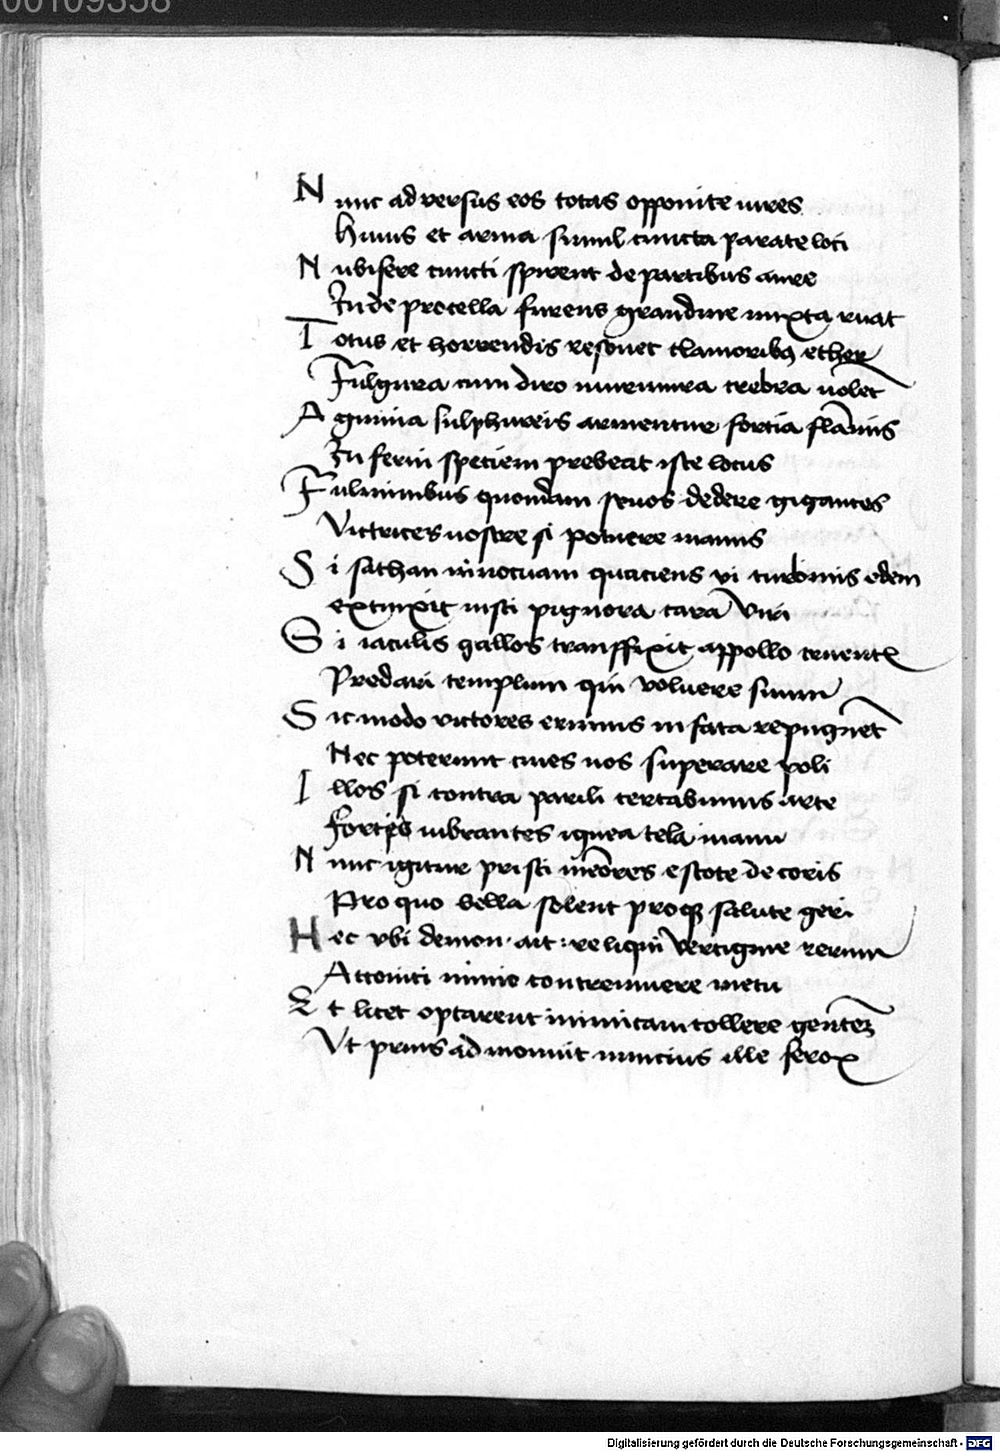 00109358
Nunc adversus eos totas opponite vires
Huius et arma simul cuncta parate loci
Nubifere cuncti spirent de partibus aure
Inde procella furens grandine mixta ruat
Totus et horrendis resonet clamoribꝰ ether
Fulgura cum diro murmura crebra volet
Agmina sulphureis armentur fortia flāmis
Inferni speciem prebeat iste locus
Fulminibus quondam seuos dedere gigantes
Victrices nostre si potuere manus
Si sathan innocuam quaciens vi turbinis edem
extinxit iusti pignora cara Viri
Si iaculis gallos transffixit appollo cruent
Predari templum qui voluere suum
Sic modo victores erimus in fata repugnēt
Nec poterunt ciues nos superare poli
Illos si contra parili certabimus arte
fortes vibrantes ignea tela manu
Nunc igitur pristi mēores estote decoris
Pro quo bella solent proqꝫ salute geri
Hec vbi demon ait: reliqui Vertigine rerum
Attoniti nimio contremuere metu
Et licet optarent inimicam tollere gentem
Vt prius admonuit nuncius ille ferox
Digitalisierung gefördert durch die Deutsche Forschungsgemeinschaft - DFG